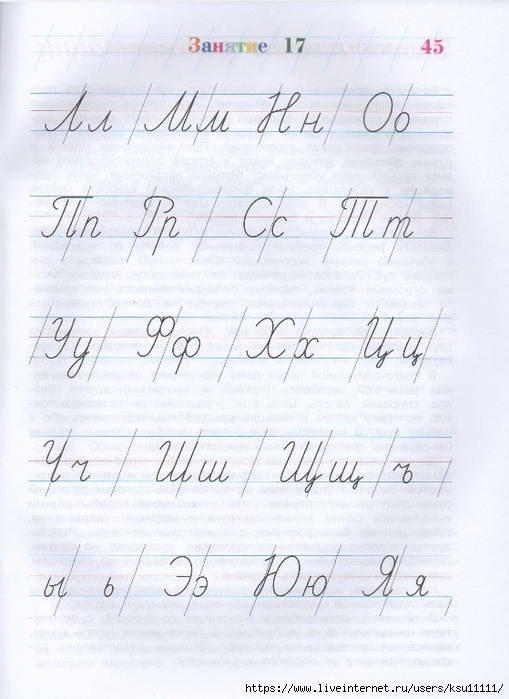 Занятие 17 45
Лл Мм Нн Оо
Пп Рр Сс Тт
Уу Фф Хх Цц
Чч Шш Щщ ъ
ы ь Ээ Юю Яя
https://www.liveinternet.ru/users/ksu11111/